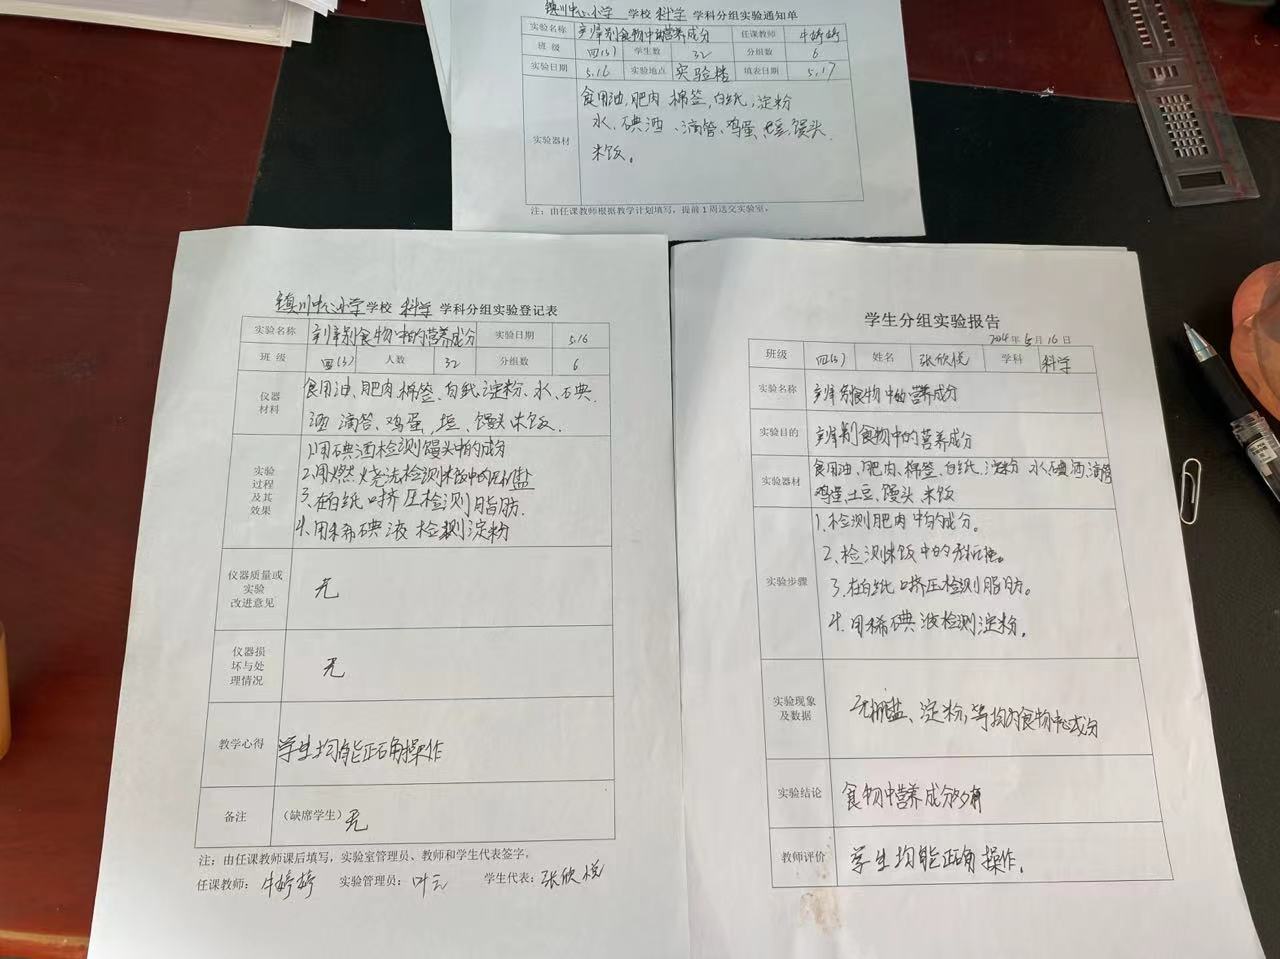 镇川中心小学 学校 科学 学科分组实验通知单
实验名称 辨别食物中的营养成分 任课教师 牛婷婷
班 级 四(3) 学生数 32 分组数 6
实验日期 5.16 实验地点 实验楼 填表日期 5.17
食用油,肥肉 棉签,白纸,淀粉
水、碘酒、滴管、鸡蛋、馒头
实验器材
米饭。
注:由任课教师根据教学计划填写,提前1周送交实验室。
镇川中心小学 学校 科学 学科分组实验登记表
实验名称 辨别食物中的营养成分 实验日期 5.16
班 级 四(3) 人数 32 分组数 6
仪器材料
食用油、肥肉、棉签、白纸、淀粉、水、碘
酒 滴管、鸡蛋, 馒头 米饭.
实验过程及其效果
1.用碘酒检测馒头中的成分
2.用燃烧法检测米饭中的无机盐
3.在白纸上挤压检测脂肪.
4.用稀碘液检测淀粉
仪器质量或实验改进意见 无
仪器损坏与处理情况 无
教学心得 学生均能正确操作
备注 (缺席学生) 无
注:由任课教师课后填写,实验室管理员、教师和学生代表签字。
任课教师: 牛婷婷 实验管理员: 叶云 学生代表: 张欣悦
学生分组实验报告
2024年5月16日
班级 四(3) 姓名 张欣悦 学科 科学
实验名称 辨别食物中的营养成分
实验目的 辨别食物中的营养成分
实验器材
食用油、肥肉、棉签、白纸、淀粉 水 碘酒、滴管
鸡蛋 土豆、馒头、米饭
实验步骤
1.检测肥肉中的成分。
2.检测米饭中的无机盐。
3.在白纸上挤压检测脂肪。
4.用稀碘液检测淀粉.
实验现象及数据 无机盐、淀粉,等均为食物中成分
实验结论 食物中营养成分多种
教师评价 学生均能正确操作.